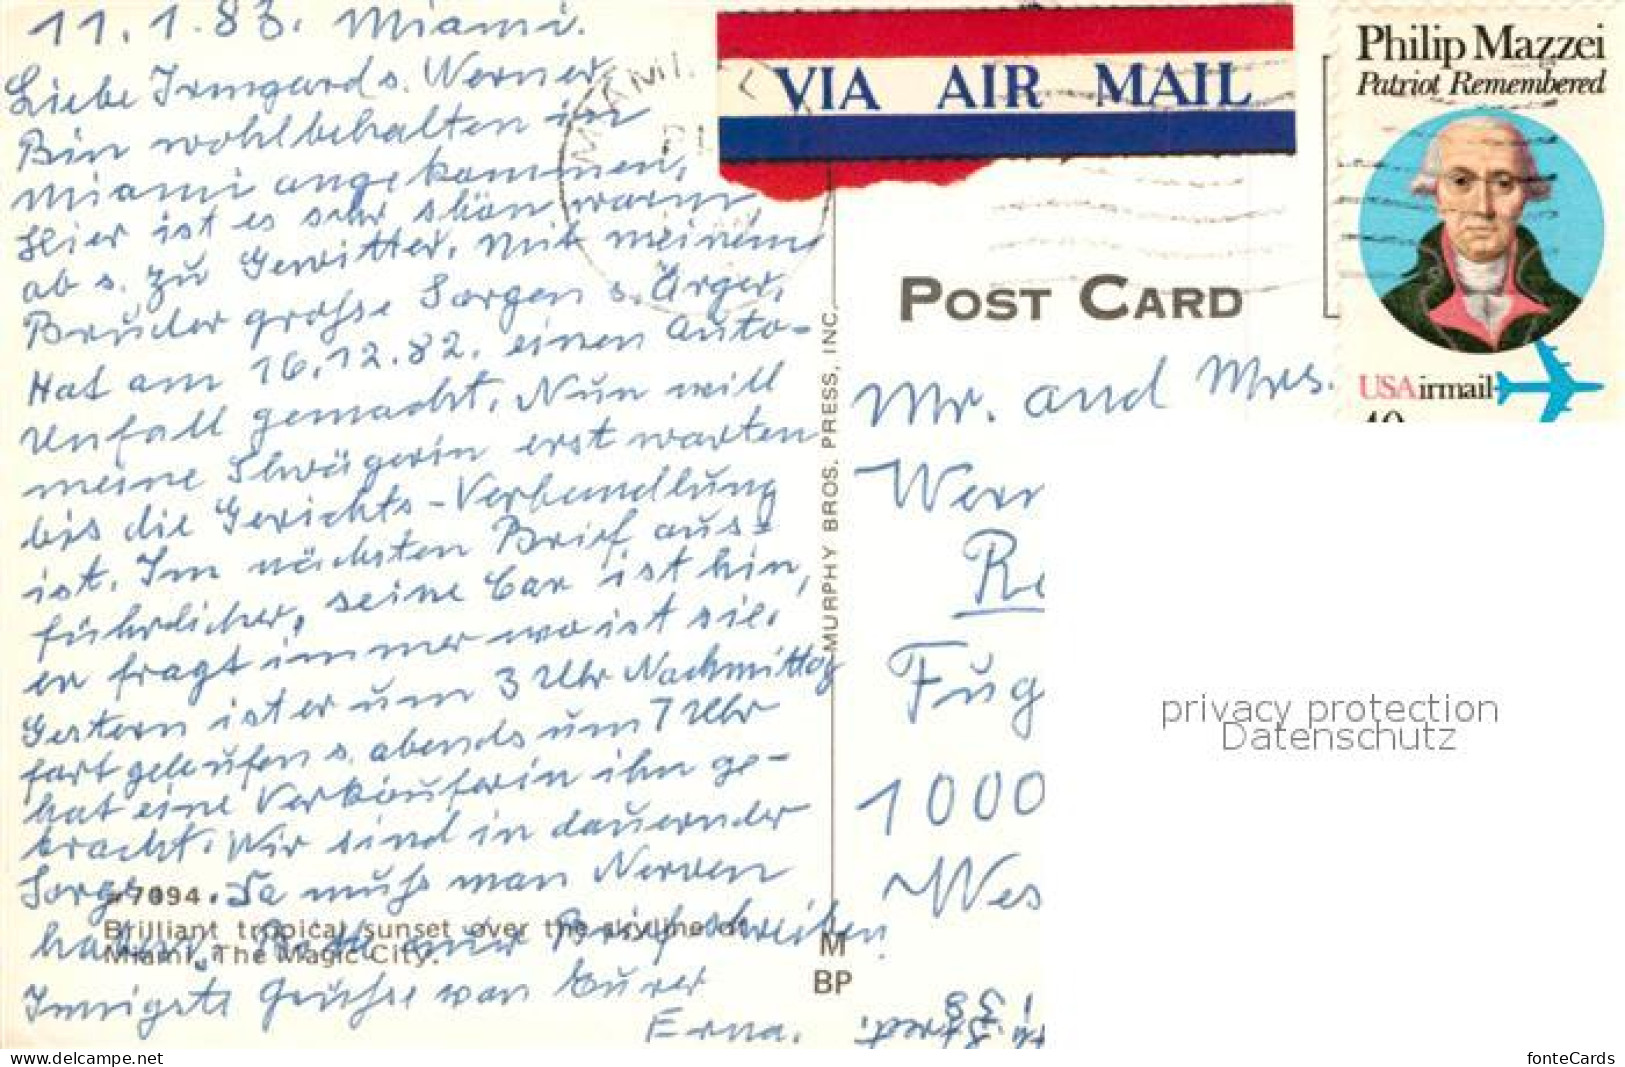 11.1.83. Miami.
Liebe Irmgard u. Werner
Bin wohlbehalten in
Miami angekommen,
Hier ist es sehr schön warm
ab u. zu Gewitter. Mit meinem
Bruder große Sorgen u. Ärger,
Hat am 16.12.82. einen Auto-
Unfall gemacht. Nun will
meine Schwägerin erst warten
bis die Gerichts-Verhandlung
ist. Im nächsten Brief aus-
führlicher, seine Car ist hin,
er fragt immer wo ist sie.
Gestern ist er um 3 Uhr Nachmittag
fort gelaufen u. abends um 7 Uhr
hat eine Verkäuferin ihn ge-
bracht. Wir sind in dauernder
Sorge. Da muß man Nerven
haben. Bitte nur Brief schreiben!
Innigste Grüße von Eurer
Erna.
7094
Brilliant tropical sunset over the skyline of
Miami, The Magic City.
MURPHY BROS. PRESS, INC.
M
BP
MIAMI
VIA AIR MAIL
Philip Mazzei
Patriot Remembered
USAirmail
40
POST CARD
Mr. and Mrs.
Wern
Re
Fug
1000
Wes
privacy protection
Datenschutz
www.delcampe.net
fonteCards